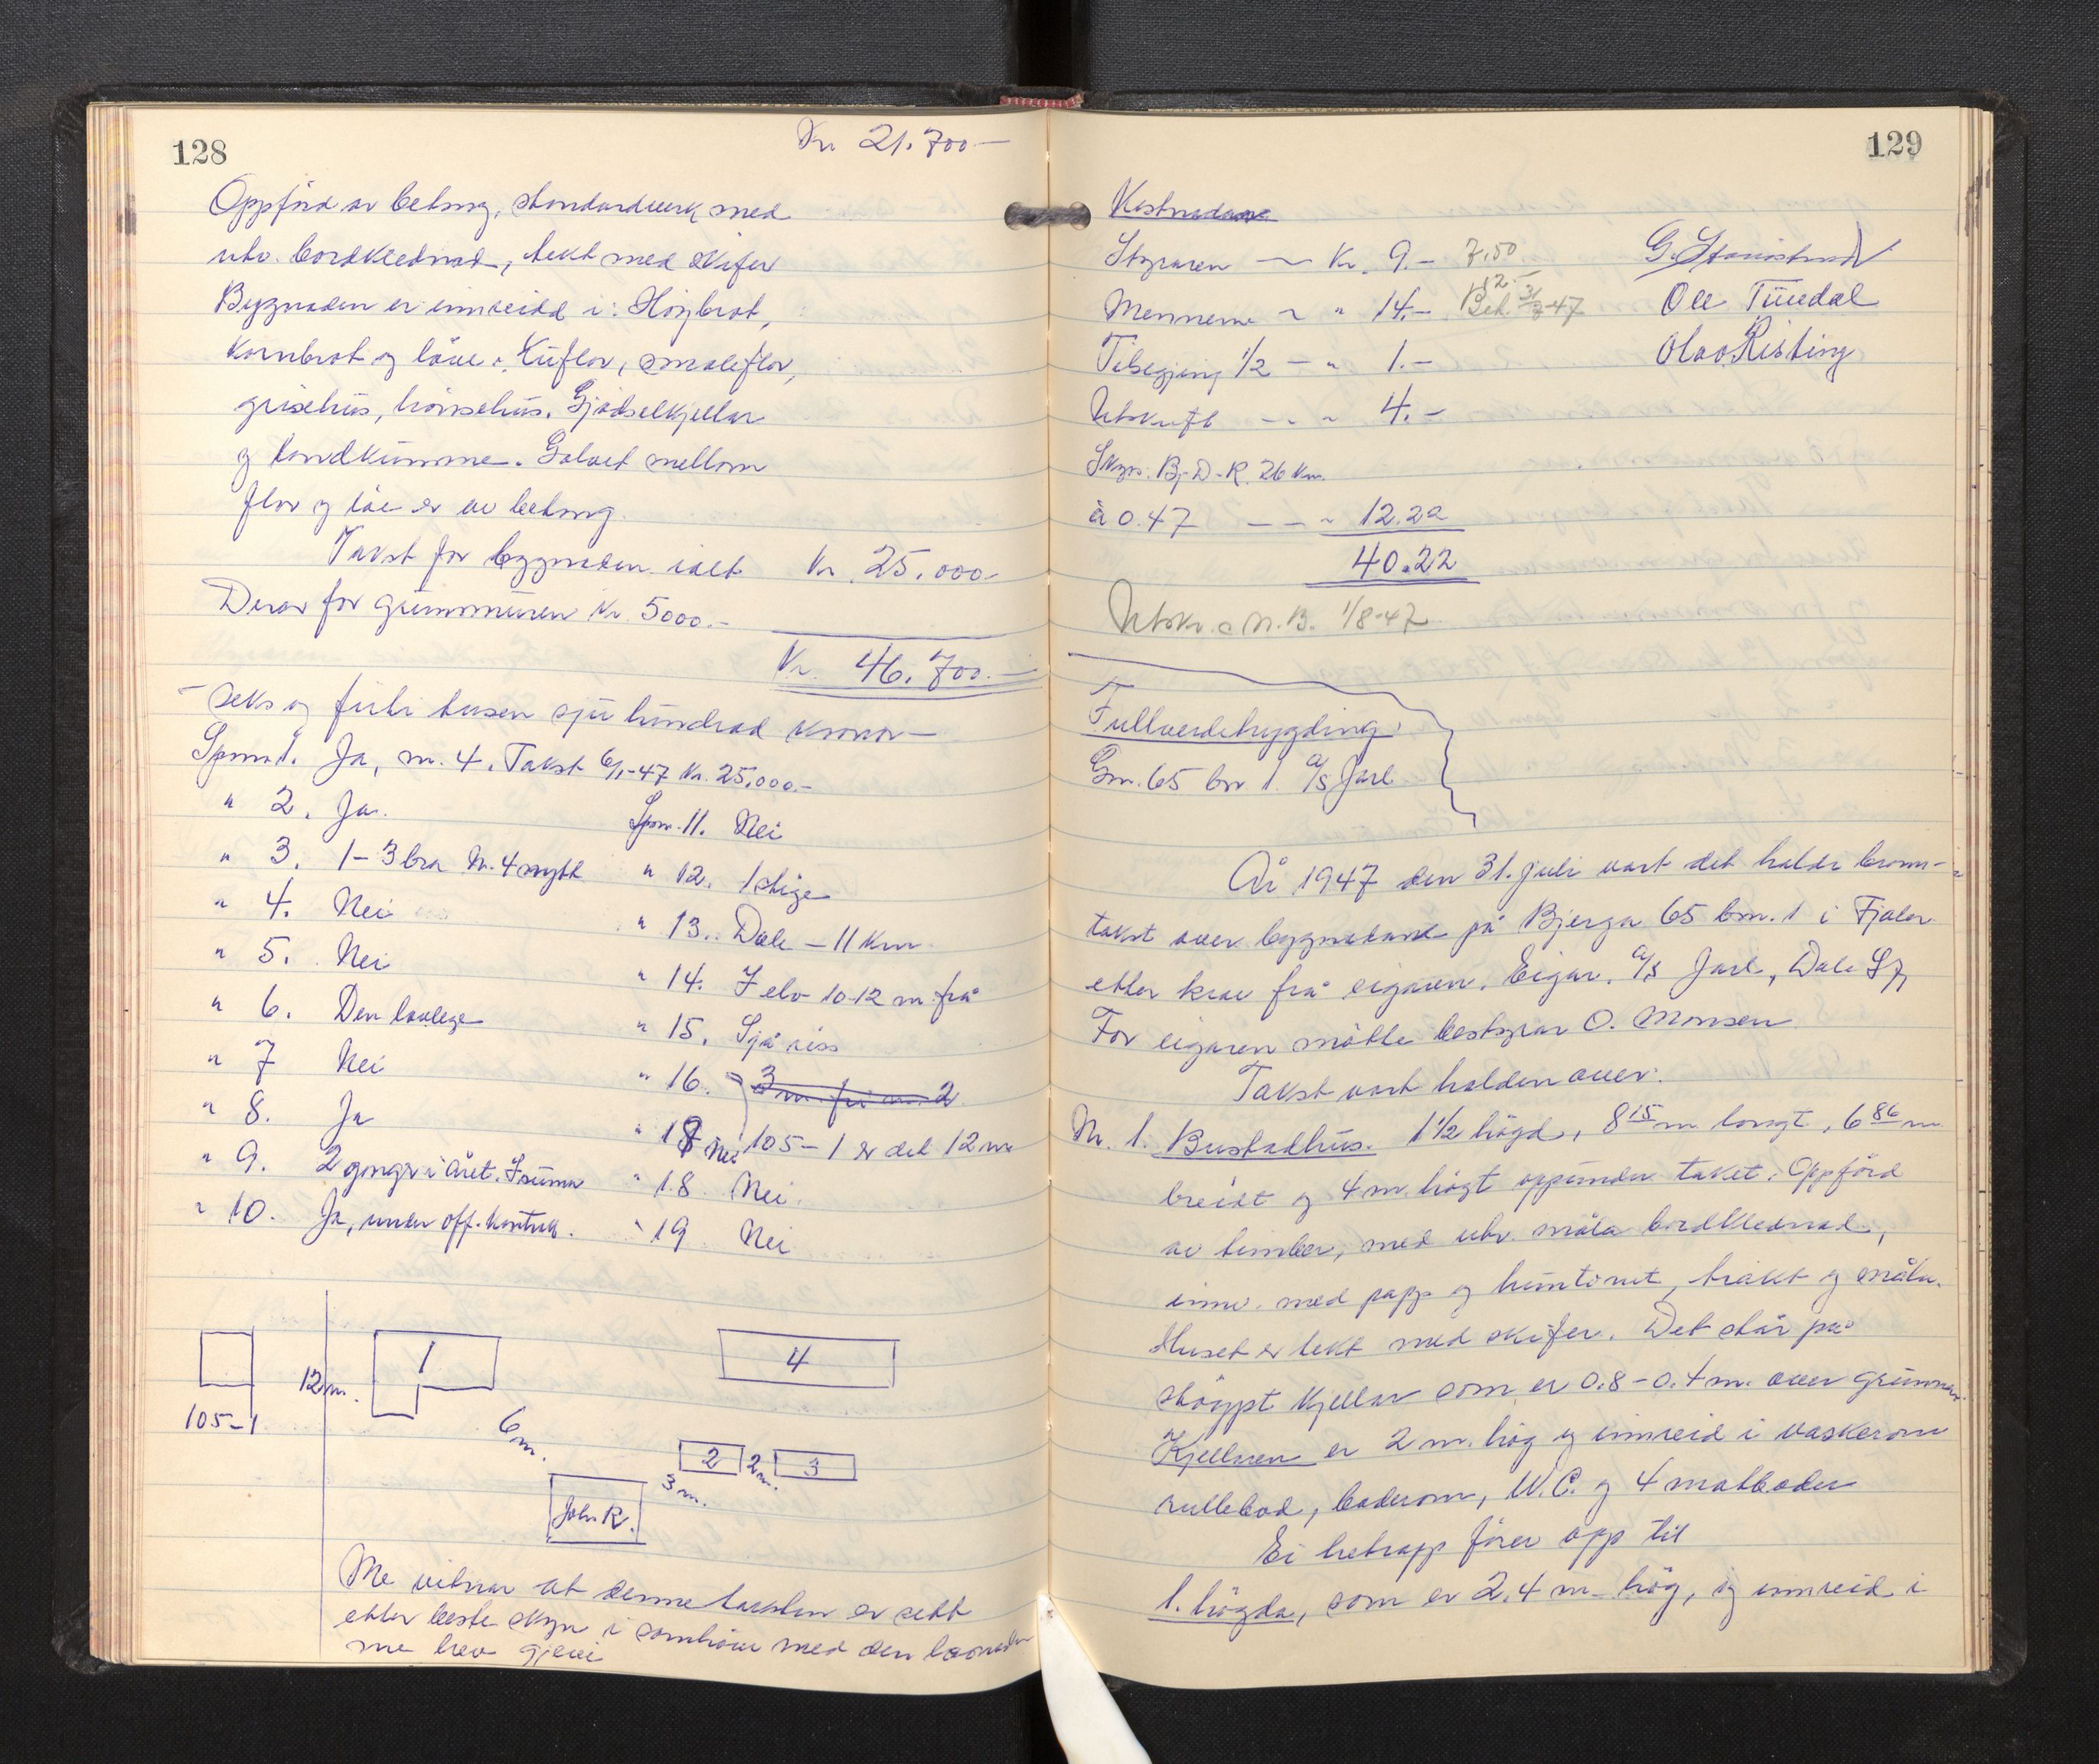 128
Kr. 21.700 —
Oppförd av betong, standardverk med
utv. bordklednad, tekt med skifer
Bygnaden er innreidd i: Höybrot,
kornbrot og låve. Kuflor, smaleflor,
grisehus, hönsehus. Gjödselkjellar
og landkumme. Golvet mellom
flor og löe er av betong.
Takst for bygnaden ialt Kr. 25.000.-
Derav for grunnmuren kr. 5000.-
Kr. 46.700.-
- seks og fürti tusen sju hundrad kronor -
Spm. 1. Ja, nr. 4. Takst 6/1-47 Kr. 25.000.-
" 2. Ja.
" 3. 1-3 bra Nr. 4 nytt
" 4. Nei
" 5. Nei
" 6. Den lovlege
" 7 Nei
" 8. Ja
" 9. 2 gonger i året.
" 10. Ja, under off. kontrol.
Spm. 11. Nei
" 12. 1 stige
" 13. Dale - 11 km
" 14. I elv 10-12 m. frå
" 15. Sjå riss
" 16. 3 m. frå nr. 2
" 17 Nei 105-1 er det 12 m
" 18. Nei.
" 19 Nei
105-1
12 m.
1
4
6 m.
2
2 m.
3
3 m.
John R.
Me vitnar at denne taksten er sett
etter beste skyn i samhöve med den lovnaden
me hev gjeve
129
Kostnadane
Styraren — Kr. 9.- 7,50
Mennene — " 14.- 12.- Bet. 31/7-47
Tilsegjing 1/2 — " 1.-
Utskrift — " 4.-
Skyss: Bj-D-R. 26 km.
à 0.47 — " 12.22
40.22
Utskr. N.B. 1/8-47
Ole Tüedal
Olav Risting
Fullverdetrygding.
Gnr. 65 bnr 1. A/s Jarl
År 1947 den 31. juli vart det halde brann-
takst over bygnadane på Bjerga 65 bnr. 1 i Fjaler
etter krav frå eigaren. Eigar. A/s Jarl, Dale Sfj
For eigaren mötte bestyrar O. Monsen
Takst vart halden over:
Nr. 1. Bustadhus. 1 1/2 högd, 8 15 m langt, 6 86 m
breidt og 4 m. högt oppunder taket. Oppförd
av timber, med utv. måla bordklednad,
innv. med papp og huntonit, trekt og måla.
Huset er tekt med skifer. Det står på
stöypt kjellar som er 0.8-0.4 m. over grunnen.
Kjellaren er 2 m. hög og innreid i vaskerom
rullebod, baderom, W.C. og 4 matboder
Ei tretrapp förer opp til
1. högda, som er 2.4 m. hög, og innreid i